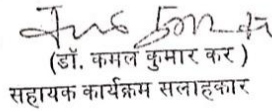 (डॉ. कमल कुमार कर )
सहायक कार्यक्रम सलाहकार